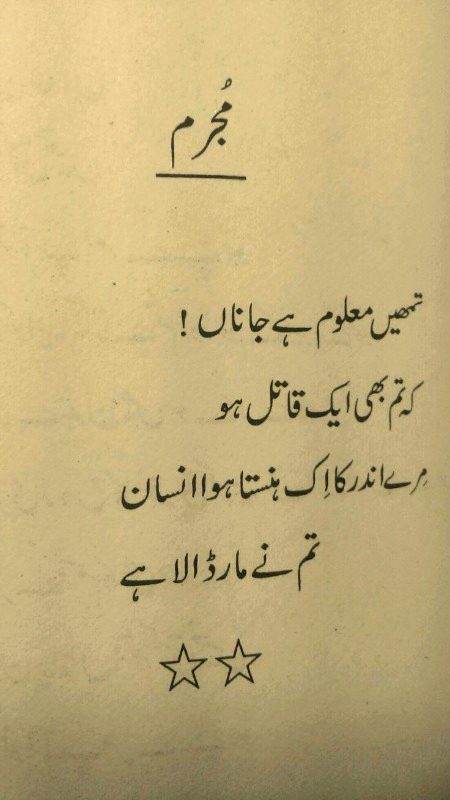 مُجرم
تمھیں معلوم ہے جاناں !
کہ تم بھی ایک قاتل ہو
مِرے اندر کا اِک ہنستا ہوا انسان
تم نے مار ڈالا ہے
☆☆